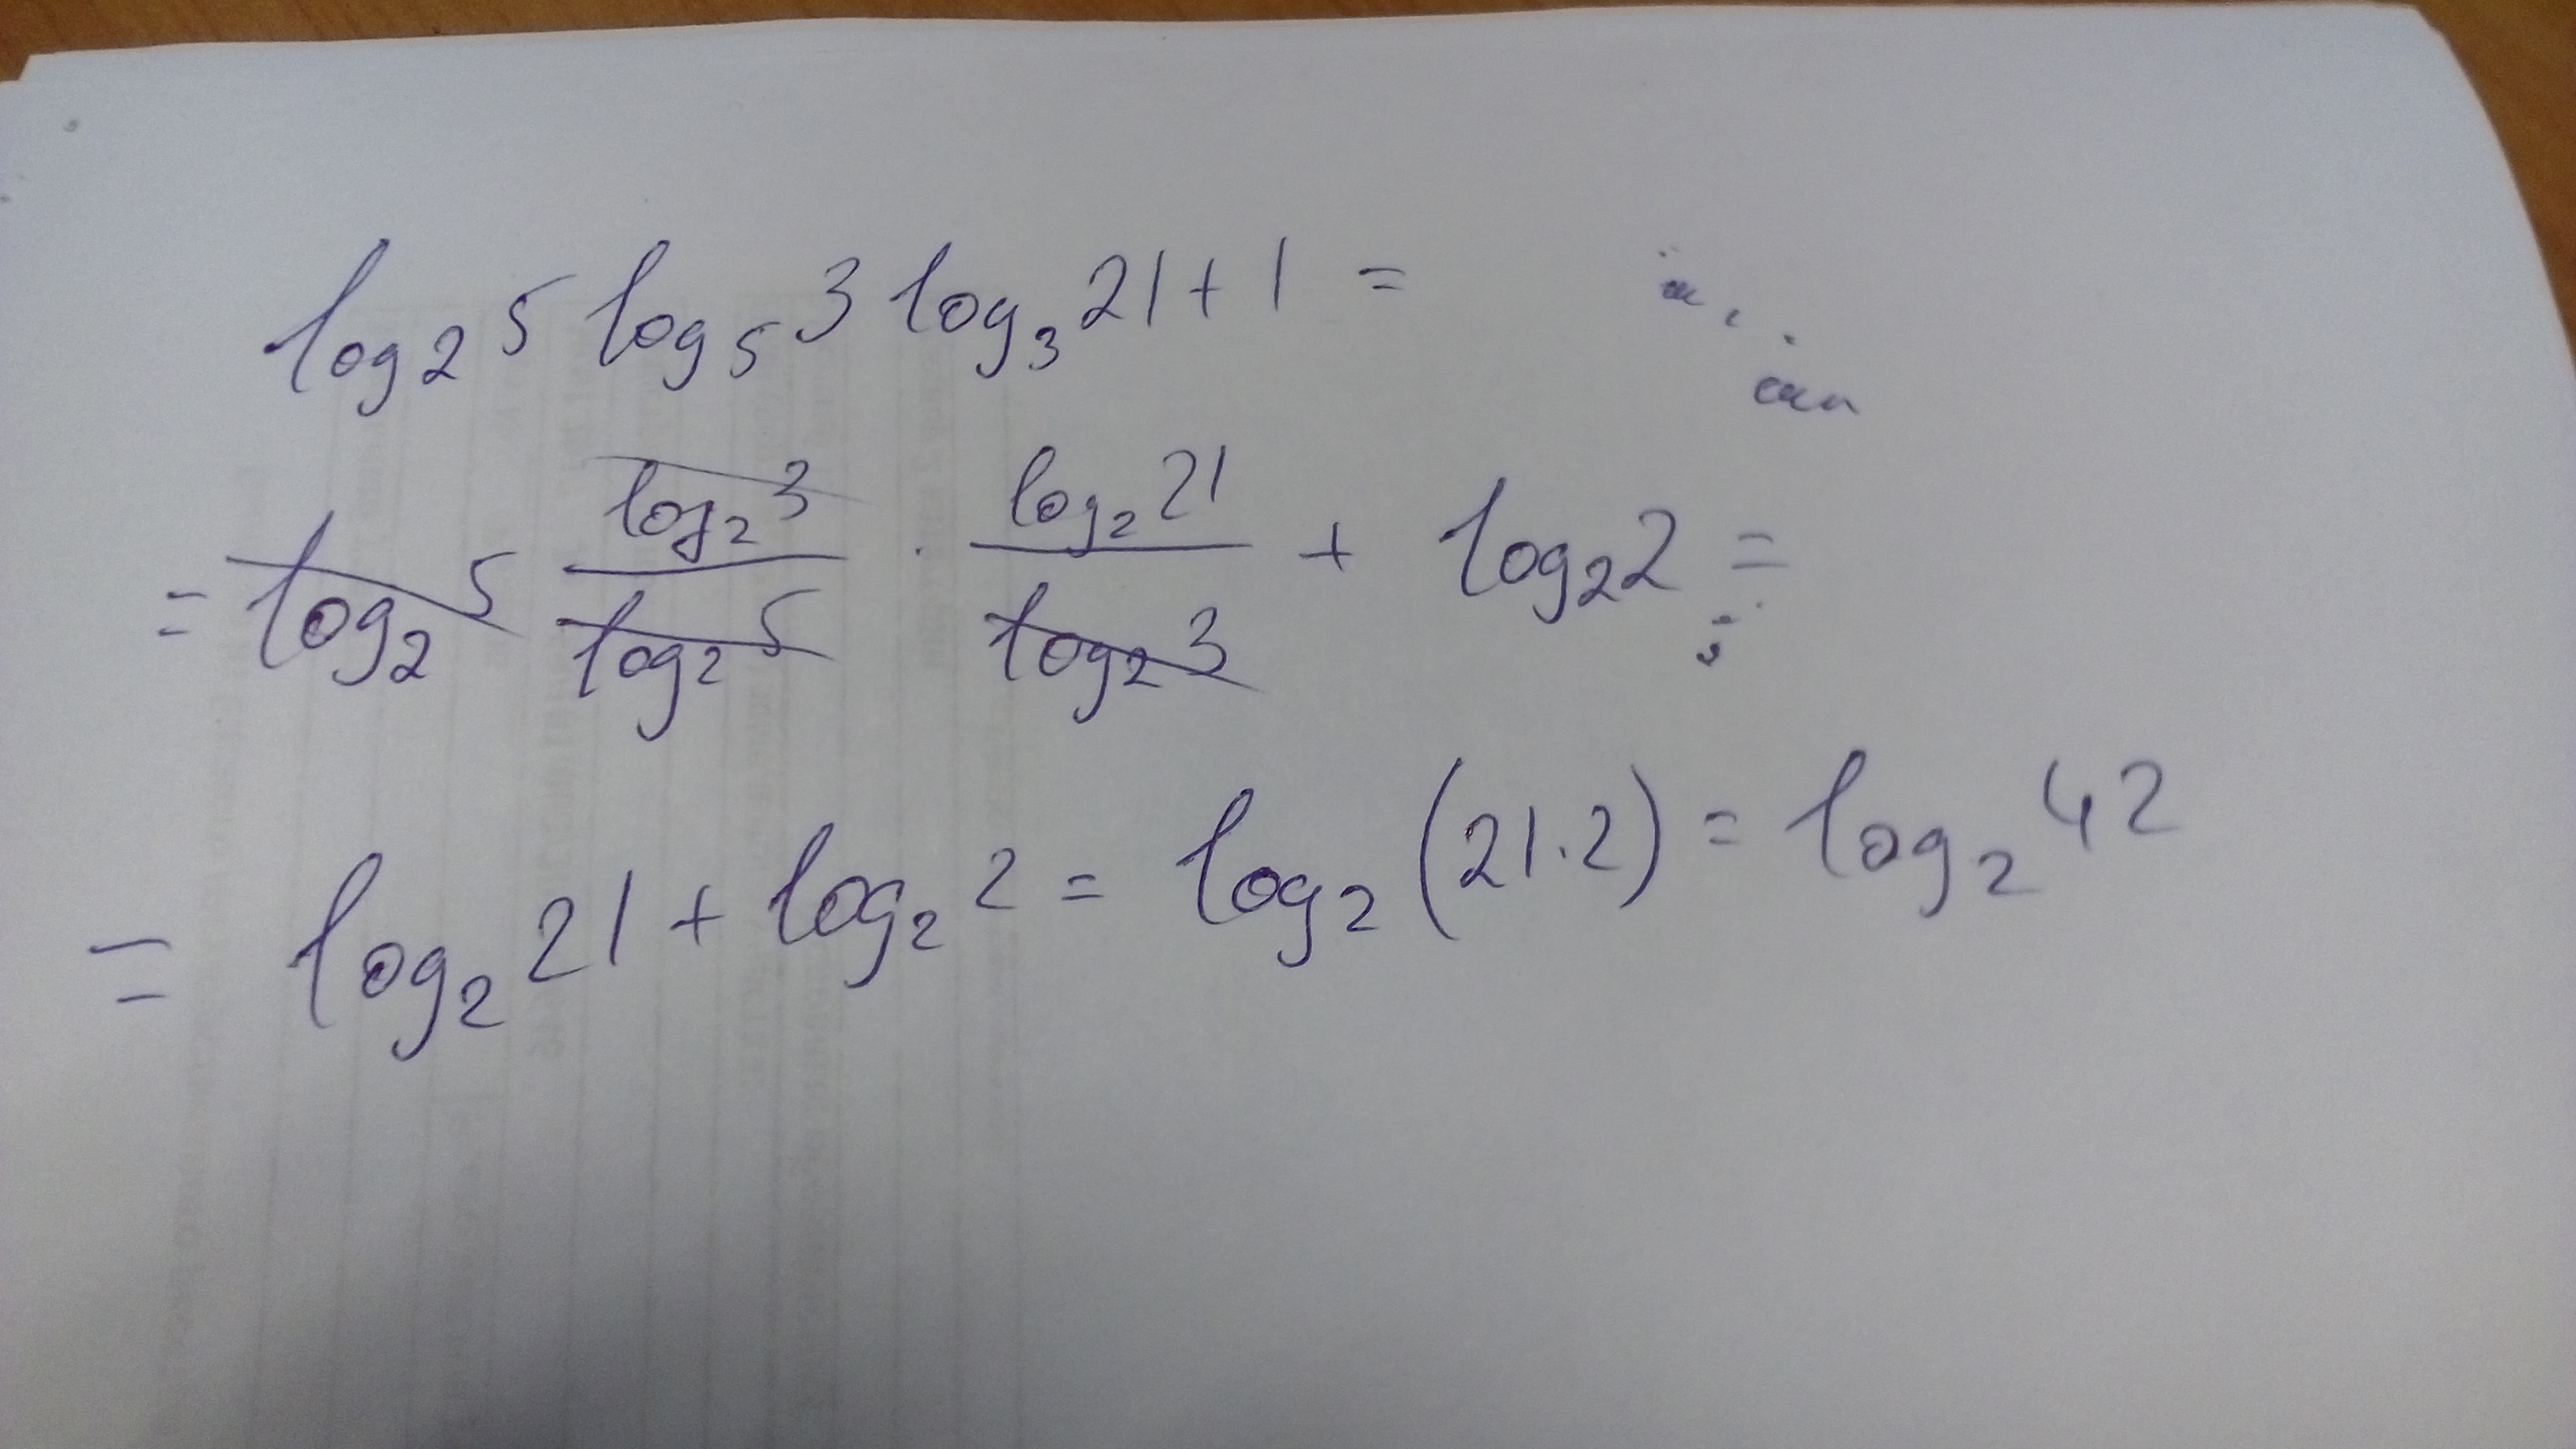 log₂ 5 log₅ 3 log₃ 21 + 1 =
= log₂ 5 (log₂ 3)/(log₂ 5) · (log₂ 21)/(log₂ 3) + log₂ 2 =
= log₂ 21 + log₂ 2 = log₂ (21·2) = log₂ 42